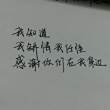 我知道
我矫情我任性
感谢你们在我身边